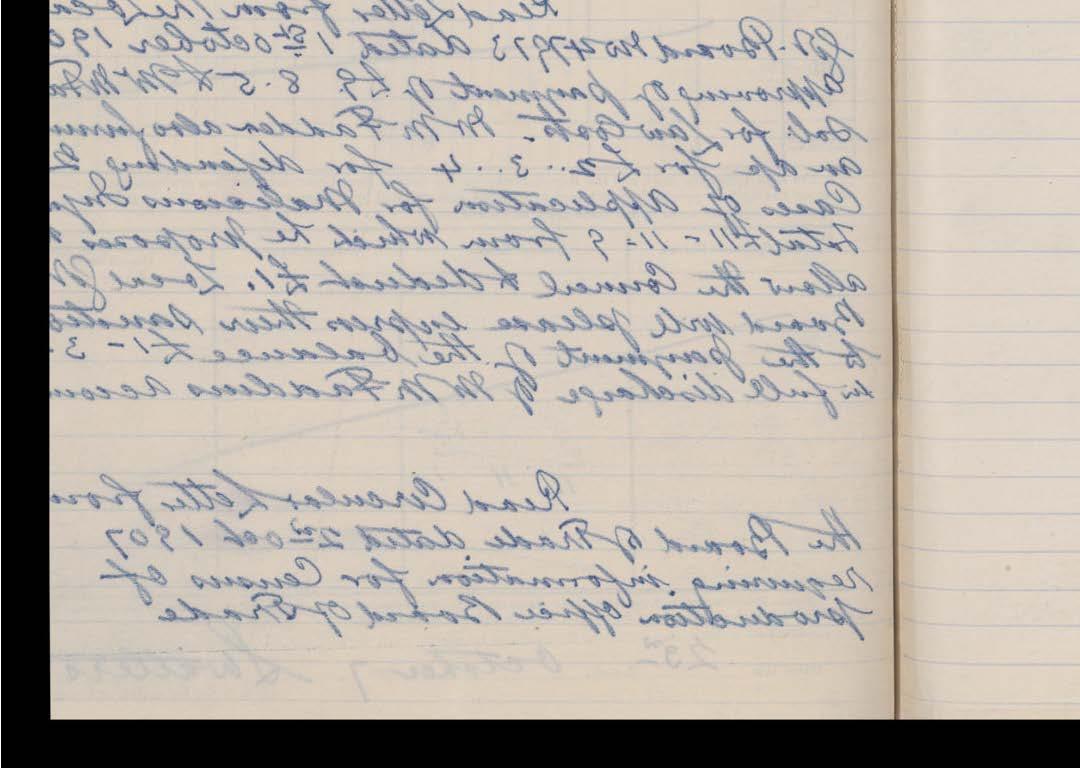 Read Letter from the Local
Gt. Board No 47973 dated 1st October 190
approving of payment of £9 8. 5 to Mr McFa
Sol. for Law Costs. Mr McFadden also furni
an a/c for £2..3..4 for defending 2
Cases of Application for Malicious Inju
total £11-11-9 from which he proposes
allow the Council to deduct £1. Local G
Board will please express their sanctio
to the payment of the balance £1-3-
in full discharge of Mr McFaddens accoun
Read Circular Letter from
the Board of Trade dated 2nd Oct 1907
requiring information for Census of
production Office Board of Trade
23rd October 7